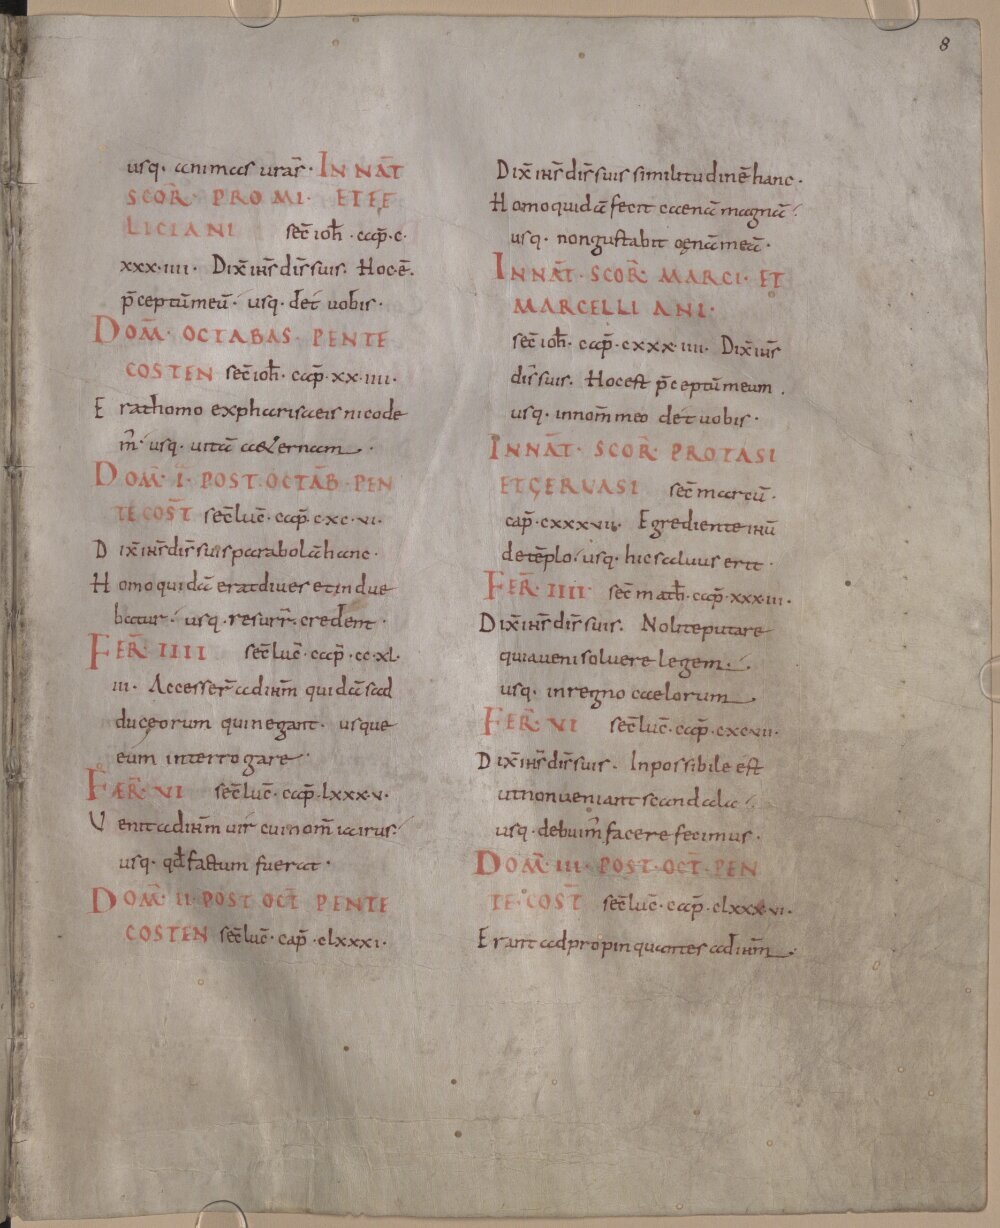 8
usq· animas uras̄· IN NAT̄
SCOR̄· PROMI· ET FE
LICIANI sec̄ ioh̄· cap̄· c·
xxx·iiii· Dix̄ ih̄s dis̄ suis· Hoc·ē·
p̄ceptū meū· usq· det uobis·
DOM̄· OCTABAS· PENTE
COSTEN sec̄ ioh̄· cap̄· xx·iiii·
Erat homo ex pharisaeis nicode
m̄· usq· uitā aeternam·
DOM̄· I· POST· OCTAB̄· PEN
TECOST̄ sec̄ luc̄· cap̄· cxc·vi·
Dix̄ ih̄s dis̄ suis parabolā hanc·
Homo quidā erat diues et indue
batur· usq· resurr̄· credent·
FER̄· IIII sec̄ luc̄· cap̄· cc·xl·
iii· Accesser̄ ad ih̄m quidā sad
duceorum qui negant· usque
eum interrogare·
FÆR̄· VI sec̄ luc̄· cap̄· lxxx·v·
Uenit ad ih̄m uir cui nom̄ iairus·
usq· qd̄ factum fuerat·
DOM̄· II· POST OCT̄ PENTE
COSTEN sec̄ luc̄· cap̄· clxxxi·
Dix̄ ih̄s dis̄ suis similitudinē hanc·
Homo quidā fecit caenā magnā·
usq· non gustabit cęnā meā·
IN NAT̄· SCOR̄· MARCI· ET
MARCELLIANI·
sec̄ ioh̄· cap̄· cxxx·iiii· Dix̄ ih̄s
dis̄ suis· Hoc est p̄ceptū meum·
usq· in nom̄ meo det uobis·
IN NAT̄· SCOR̄· PROTASI
ET GERUASI sec̄ marcū·
cap̄· cxxxvii· Egrediente ih̄u
de tēplo· usq· hic saluus erit·
FER̄· IIII sec̄ math̄· cap̄· xxx·iii·
Dix̄ ih̄s dis̄ suis· Nolite putare
quia ueni soluere legem·
usq· in regno caelorum
FER̄· VI sec̄ luc̄· cap̄· cxcvii·
Dix̄ ih̄s dis̄ suis· Inpossibile est
ut non ueniant scandala·
usq· debuim̄ facere fecimus·
DOM̄· III· POST· OCT̄· PEN
TE·COST̄ sec̄ luc̄· cap̄· clxxx·vi·
Erant adpropinquantes ad ih̄m·